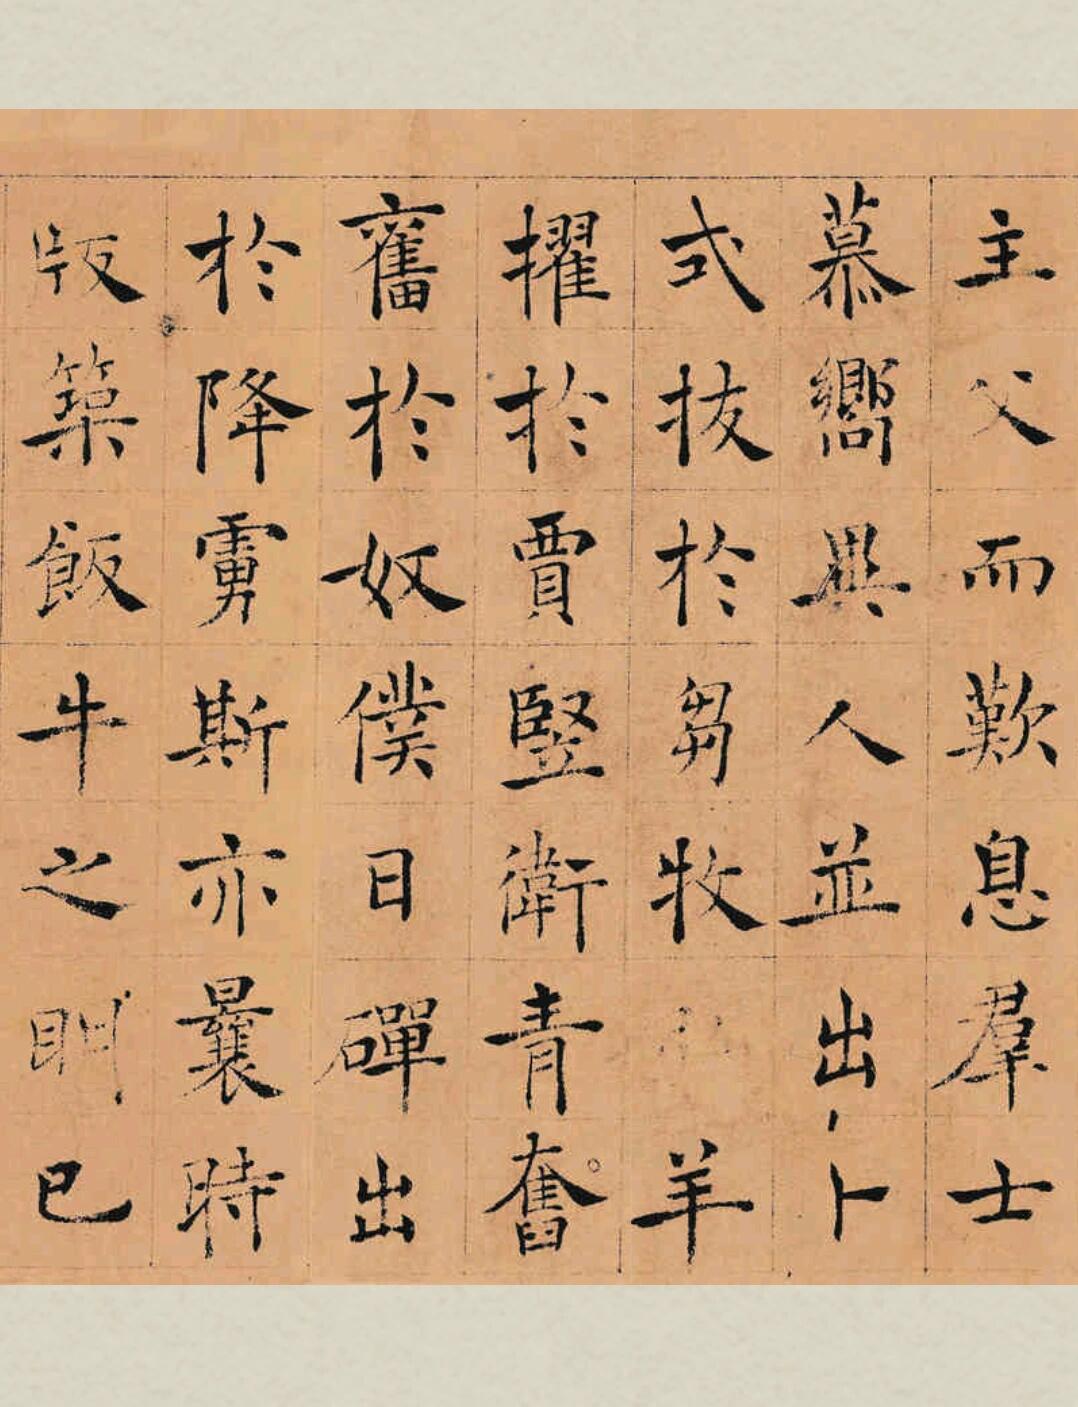 主父而歎息羣士
慕嚮異人並出卜
式拔於芻牧羊
擢於賈豎衛青奮
奮於奴僕日磾出
於降虜斯亦曩時
版築飯牛之明已